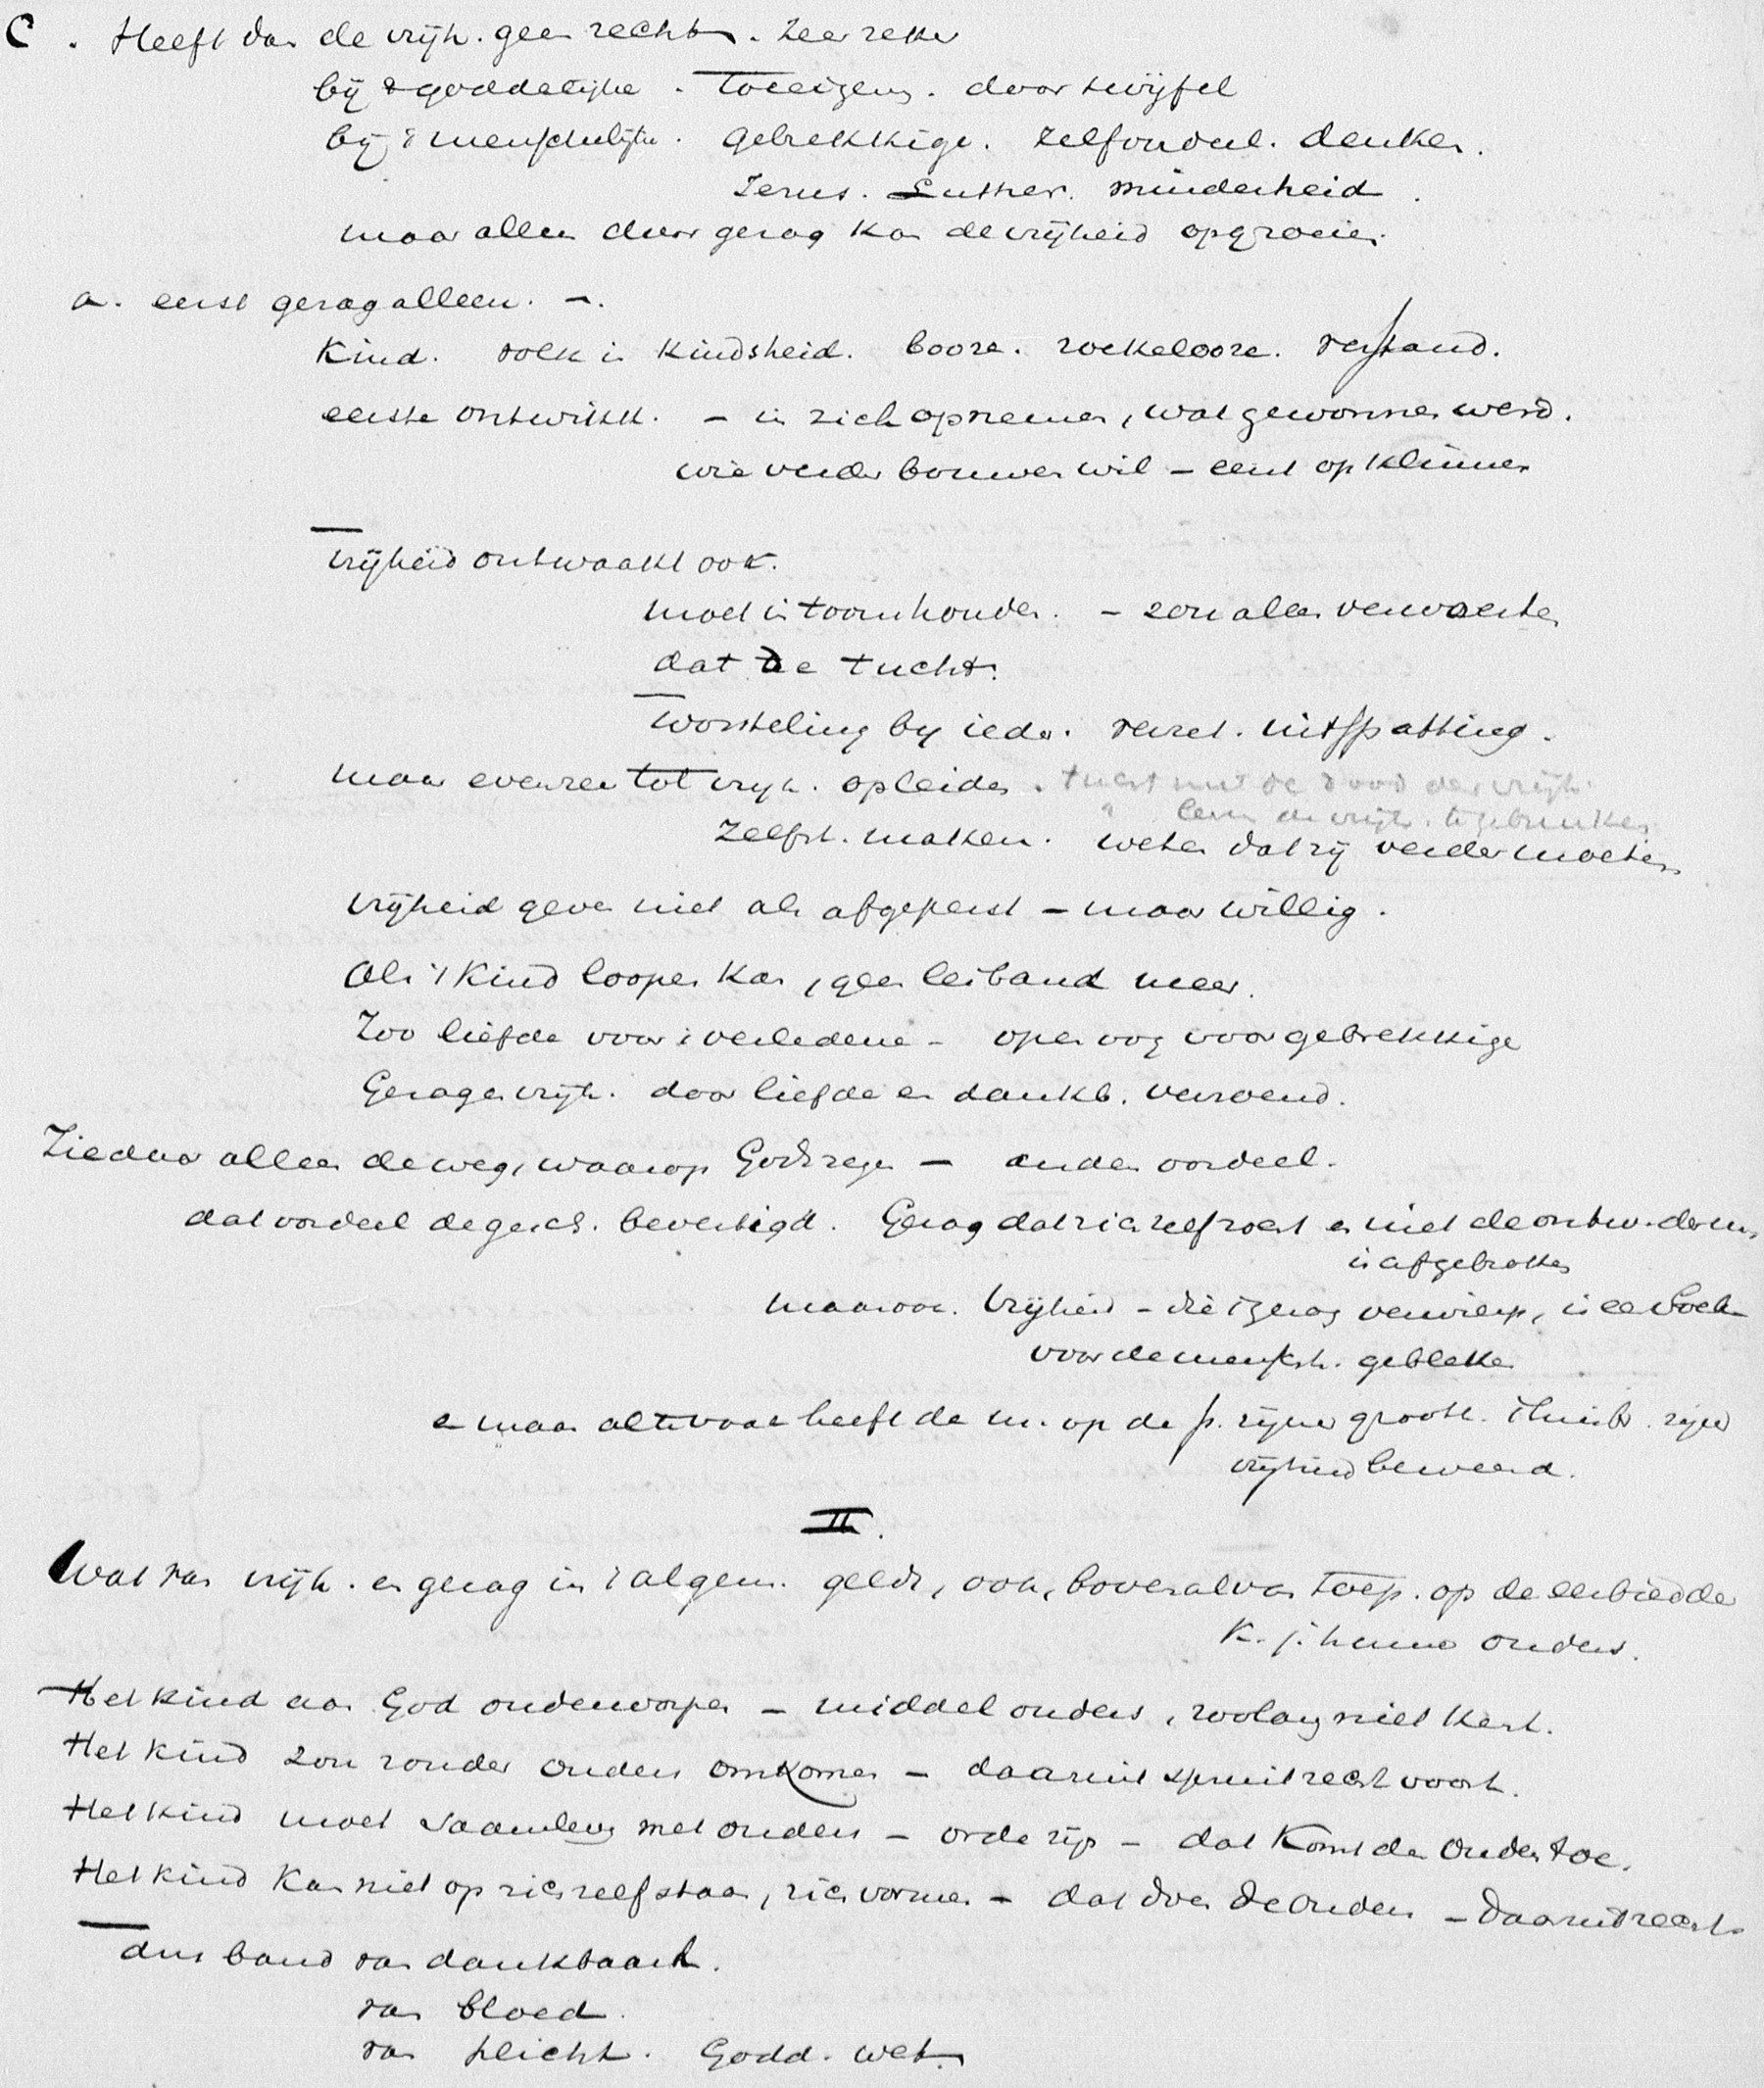 C. Heeft dan de vrijh. geen rechten. Zeer zeker
bij 't goddelijke. Toeeigens. door twijfel
bij 't menschelijke. Gebrekkige. Zelfoordeel. denken.
Jezus. Luther. minderheid.
maar alleen door gezag kan de vrijheid opgroeien.
a. eerst gezag alleen. –.
Kind. volk in kindsheid. booze. roekelooze. verstand.
eerste ontwikk. – in zich opnemen, wat gewonnen werd.
wie verder bouwen wil – eerst opklimmen
Vrijheid ontwaakt ook.
moet in toom houden. – zou alles verwoesten
dat de tucht.
Worsteling by ieder. verzet. uitspatting.
maar evenzeer tot vryh. opleiden. tucht niet de dood der vrijh.
" leere de vrijh. te gebruiken
zelfst. maken. weten dat zij verder moeten
Vrijheid geven niet als afgeperst – maar willig.
Als 't kind loopen kan, geen leiband meer.
Zoo liefde voor 't verledene – open oog voor gebrekkige
Gezag en vrijh. door liefde en dankb. verzoend.
Ziedaar alleen de weg, waarop Gods zegen – ander oordeel.
dat oordeel de gesch. bevestigd. Gezag dat zich zelf zoekt en niet de ontw. der m.
is afgebroken
maar ook. Vrijheid – die 't gezag verwierp, is een vloek
voor de mensch. gebleken
en maar al te vaak heeft de m. op de p. zijner groott. 't huisb. zijner
vrijheid beweend.
II.
Wat van vrijh. en gezag in 't algem. geldt, ook, bovenal van toep. op de eerbied der
k. j. hunne ouders.
Het kind aan God onderworpen – middel ouders, zoolang niet kent.
Het kind zou zonder ouders omkomen – daaruit spruit recht voort.
Het kind moet saamleven met ouders – orde zijn – dat komt den ouders toe.
Het kind kan niet op zich zelf staan, zich vormen – dat doen de ouders – daaruit recht.
dus band van dankbaarh.
van bloed.
van plicht. Godd. wet.